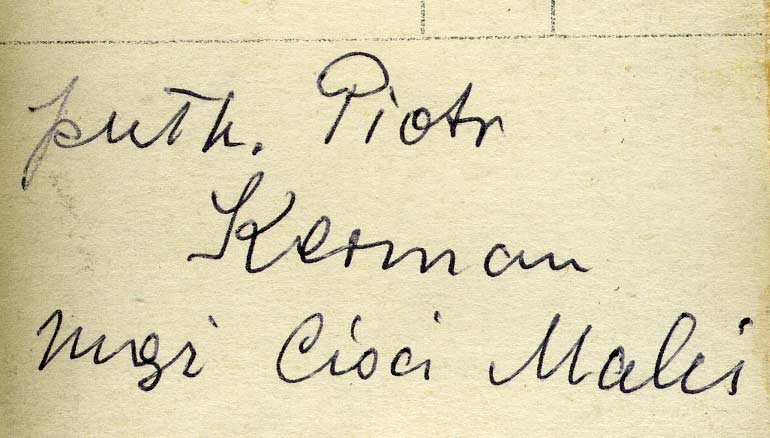 pułk. Piotr
Kerman
mąż Cioci Mali